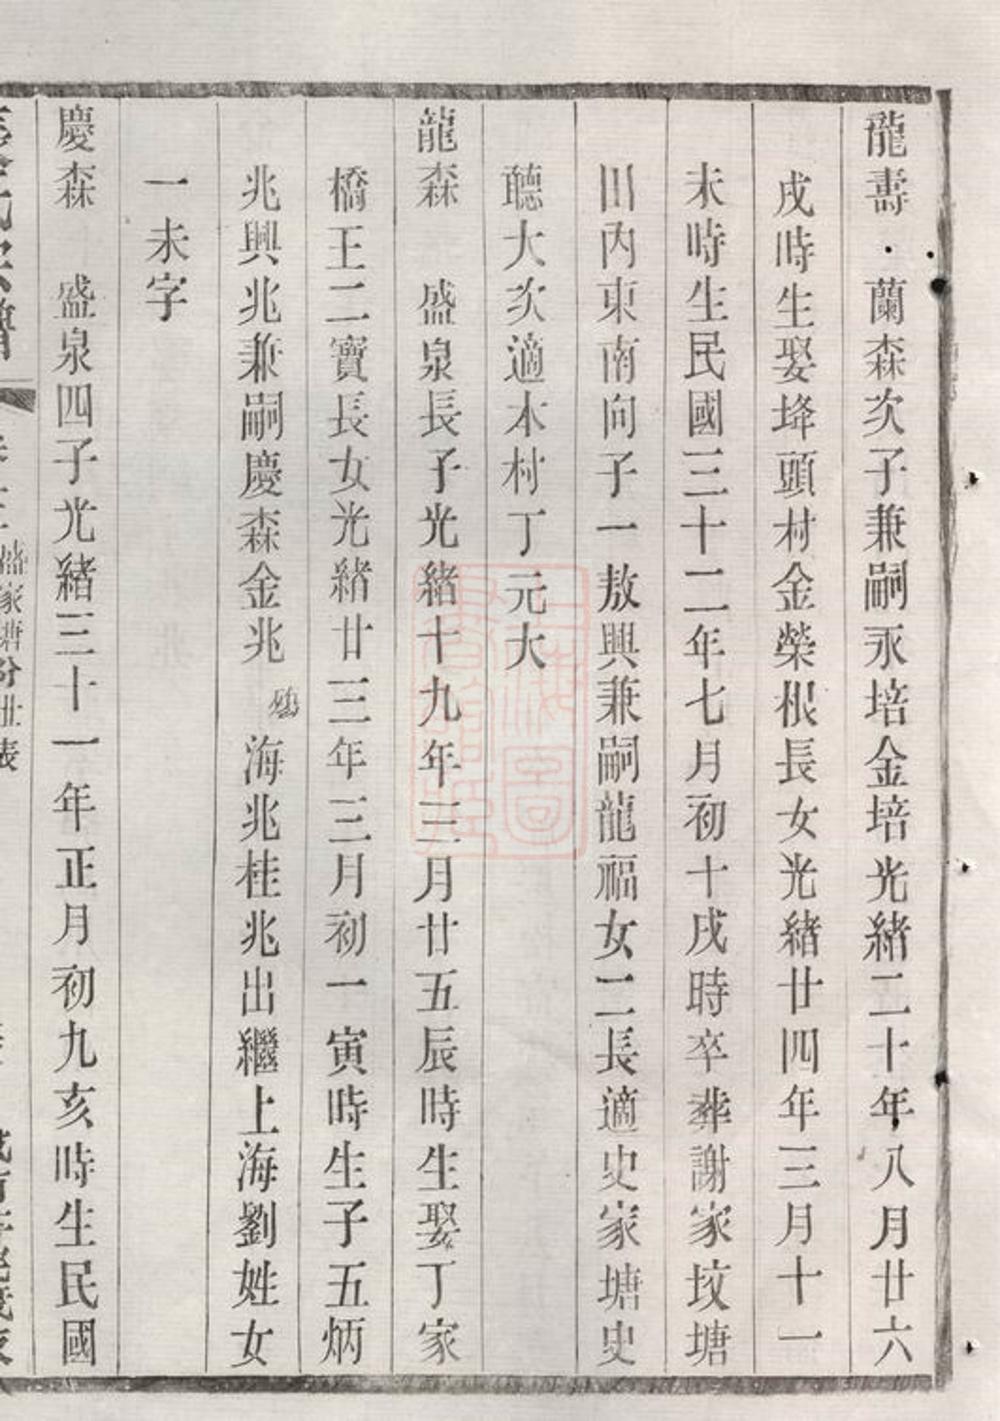 龍壽·蘭森次子兼嗣永培金培光緒二十年八月廿六
戌時生娶垰頭村金榮根長女光緒廿四年三月十一
未時生民國三十二年七月初十戌時卒葬謝家坟塘
田內東南向子一敖興兼嗣龍福女二長適史家塘史
聽大次適本村丁元大
龍森 盛泉長子光緒十九年三月廿五辰時生娶丁家
橋王二寶長女光緒廿三年三月初一寅時生子五炳
兆興兆兼嗣慶森金兆 殤 海兆桂兆出繼上海劉姓女
一未字
慶森 盛泉四子光緒三十一年正月初九亥時生民國
盛家塘分世表